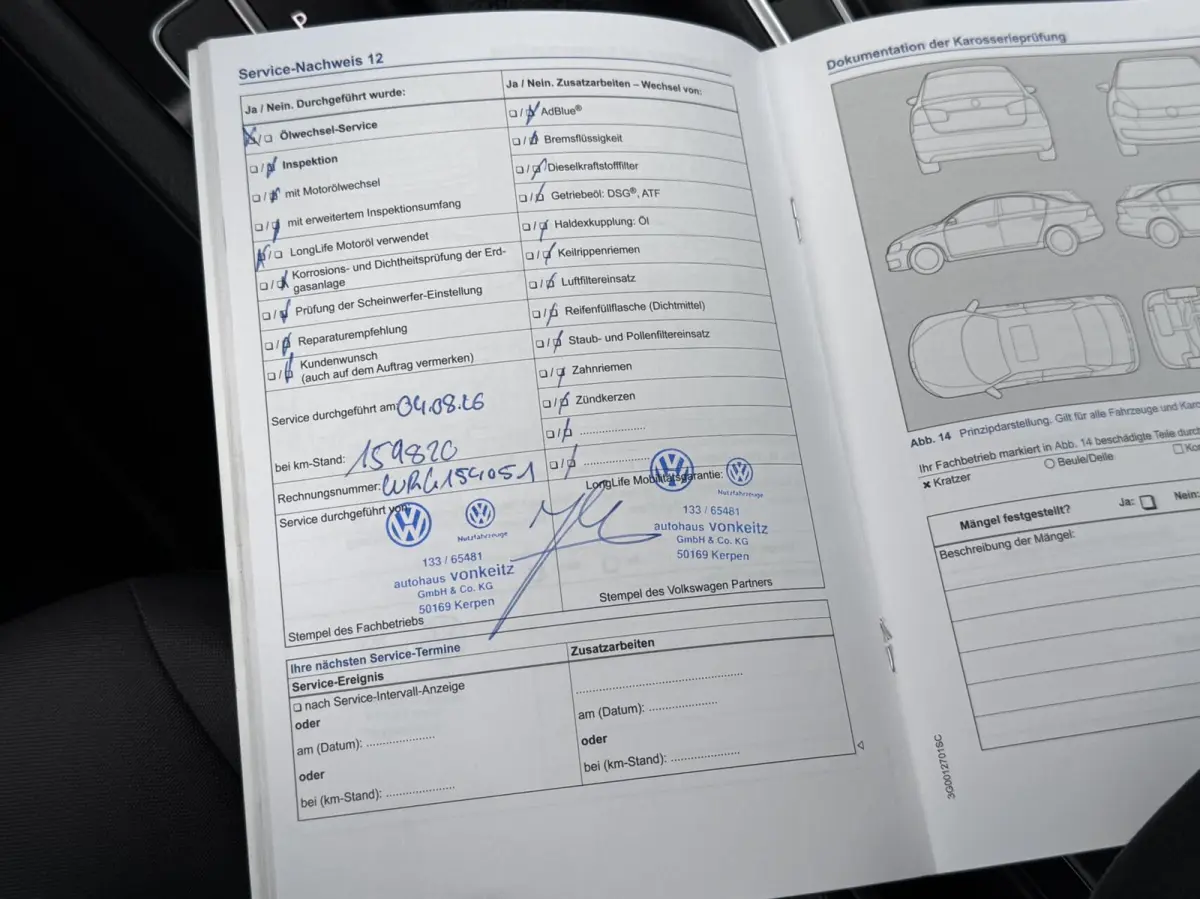 P
Service-Nachweis 12
Ja / Nein. Durchgeführt wurde:
Ölwechsel-Service
Inspektion
mit Motorölwechsel
mit erweitertem Inspektionsumfang
LongLife Motoröl verwendet
Korrosions- und Dichtheitsprüfung der Erd-
gasanlage
Prüfung der Scheinwerfer-Einstellung
Reparaturempfehlung
Kundenwunsch
(auch auf dem Auftrag vermerken)
Service durchgeführt am: 04.08.26
bei km-Stand: 159820
Rechnungsnummer: WRG154051
Service durchgeführt von:
Nutzfahrzeuge
133 / 65481
autohaus vonkeitz
GmbH & Co. KG
50169 Kerpen
Stempel des Fachbetriebs
Ja / Nein. Zusatzarbeiten – Wechsel von:
AdBlue®
Bremsflüssigkeit
Dieselkraftstofffilter
Getriebeöl: DSG®, ATF
Haldexkupplung: Öl
Keilrippenriemen
Luftfiltereinsatz
Reifenfüllflasche (Dichtmittel)
Staub- und Pollenfiltereinsatz
Zahnriemen
Zündkerzen
LongLife Mobilitätsgarantie:
Nutzfahrzeuge
133 / 65481
autohaus vonkeitz
GmbH & Co. KG
50169 Kerpen
Stempel des Volkswagen Partners
Ihre nächsten Service-Termine
Service-Ereignis
nach Service-Intervall-Anzeige
oder
am (Datum):
oder
bei (km-Stand):
Zusatzarbeiten
am (Datum):
oder
bei (km-Stand):
Dokumentation der Karosserieprüfung
Abb. 14 Prinzipdarstellung. Gilt für alle Fahrzeuge und
Ihr Fachbetrieb markiert in Abb. 14 beschädigte Teile
Kratzer
Beule/Delle
Mängel festgestellt? Ja: Nein:
Beschreibung der Mängel:
3G0012701SC